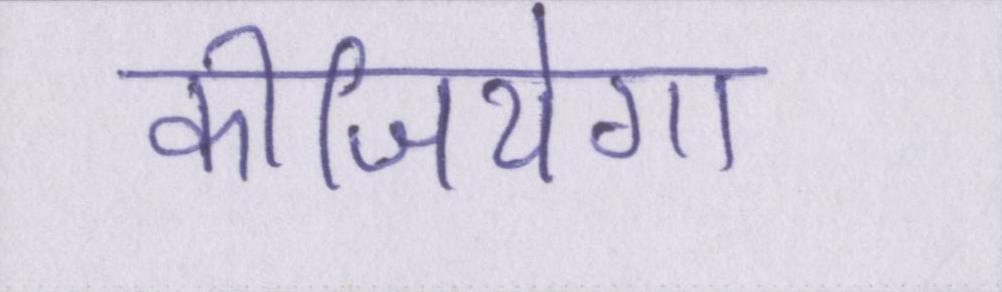 कीजियेगा